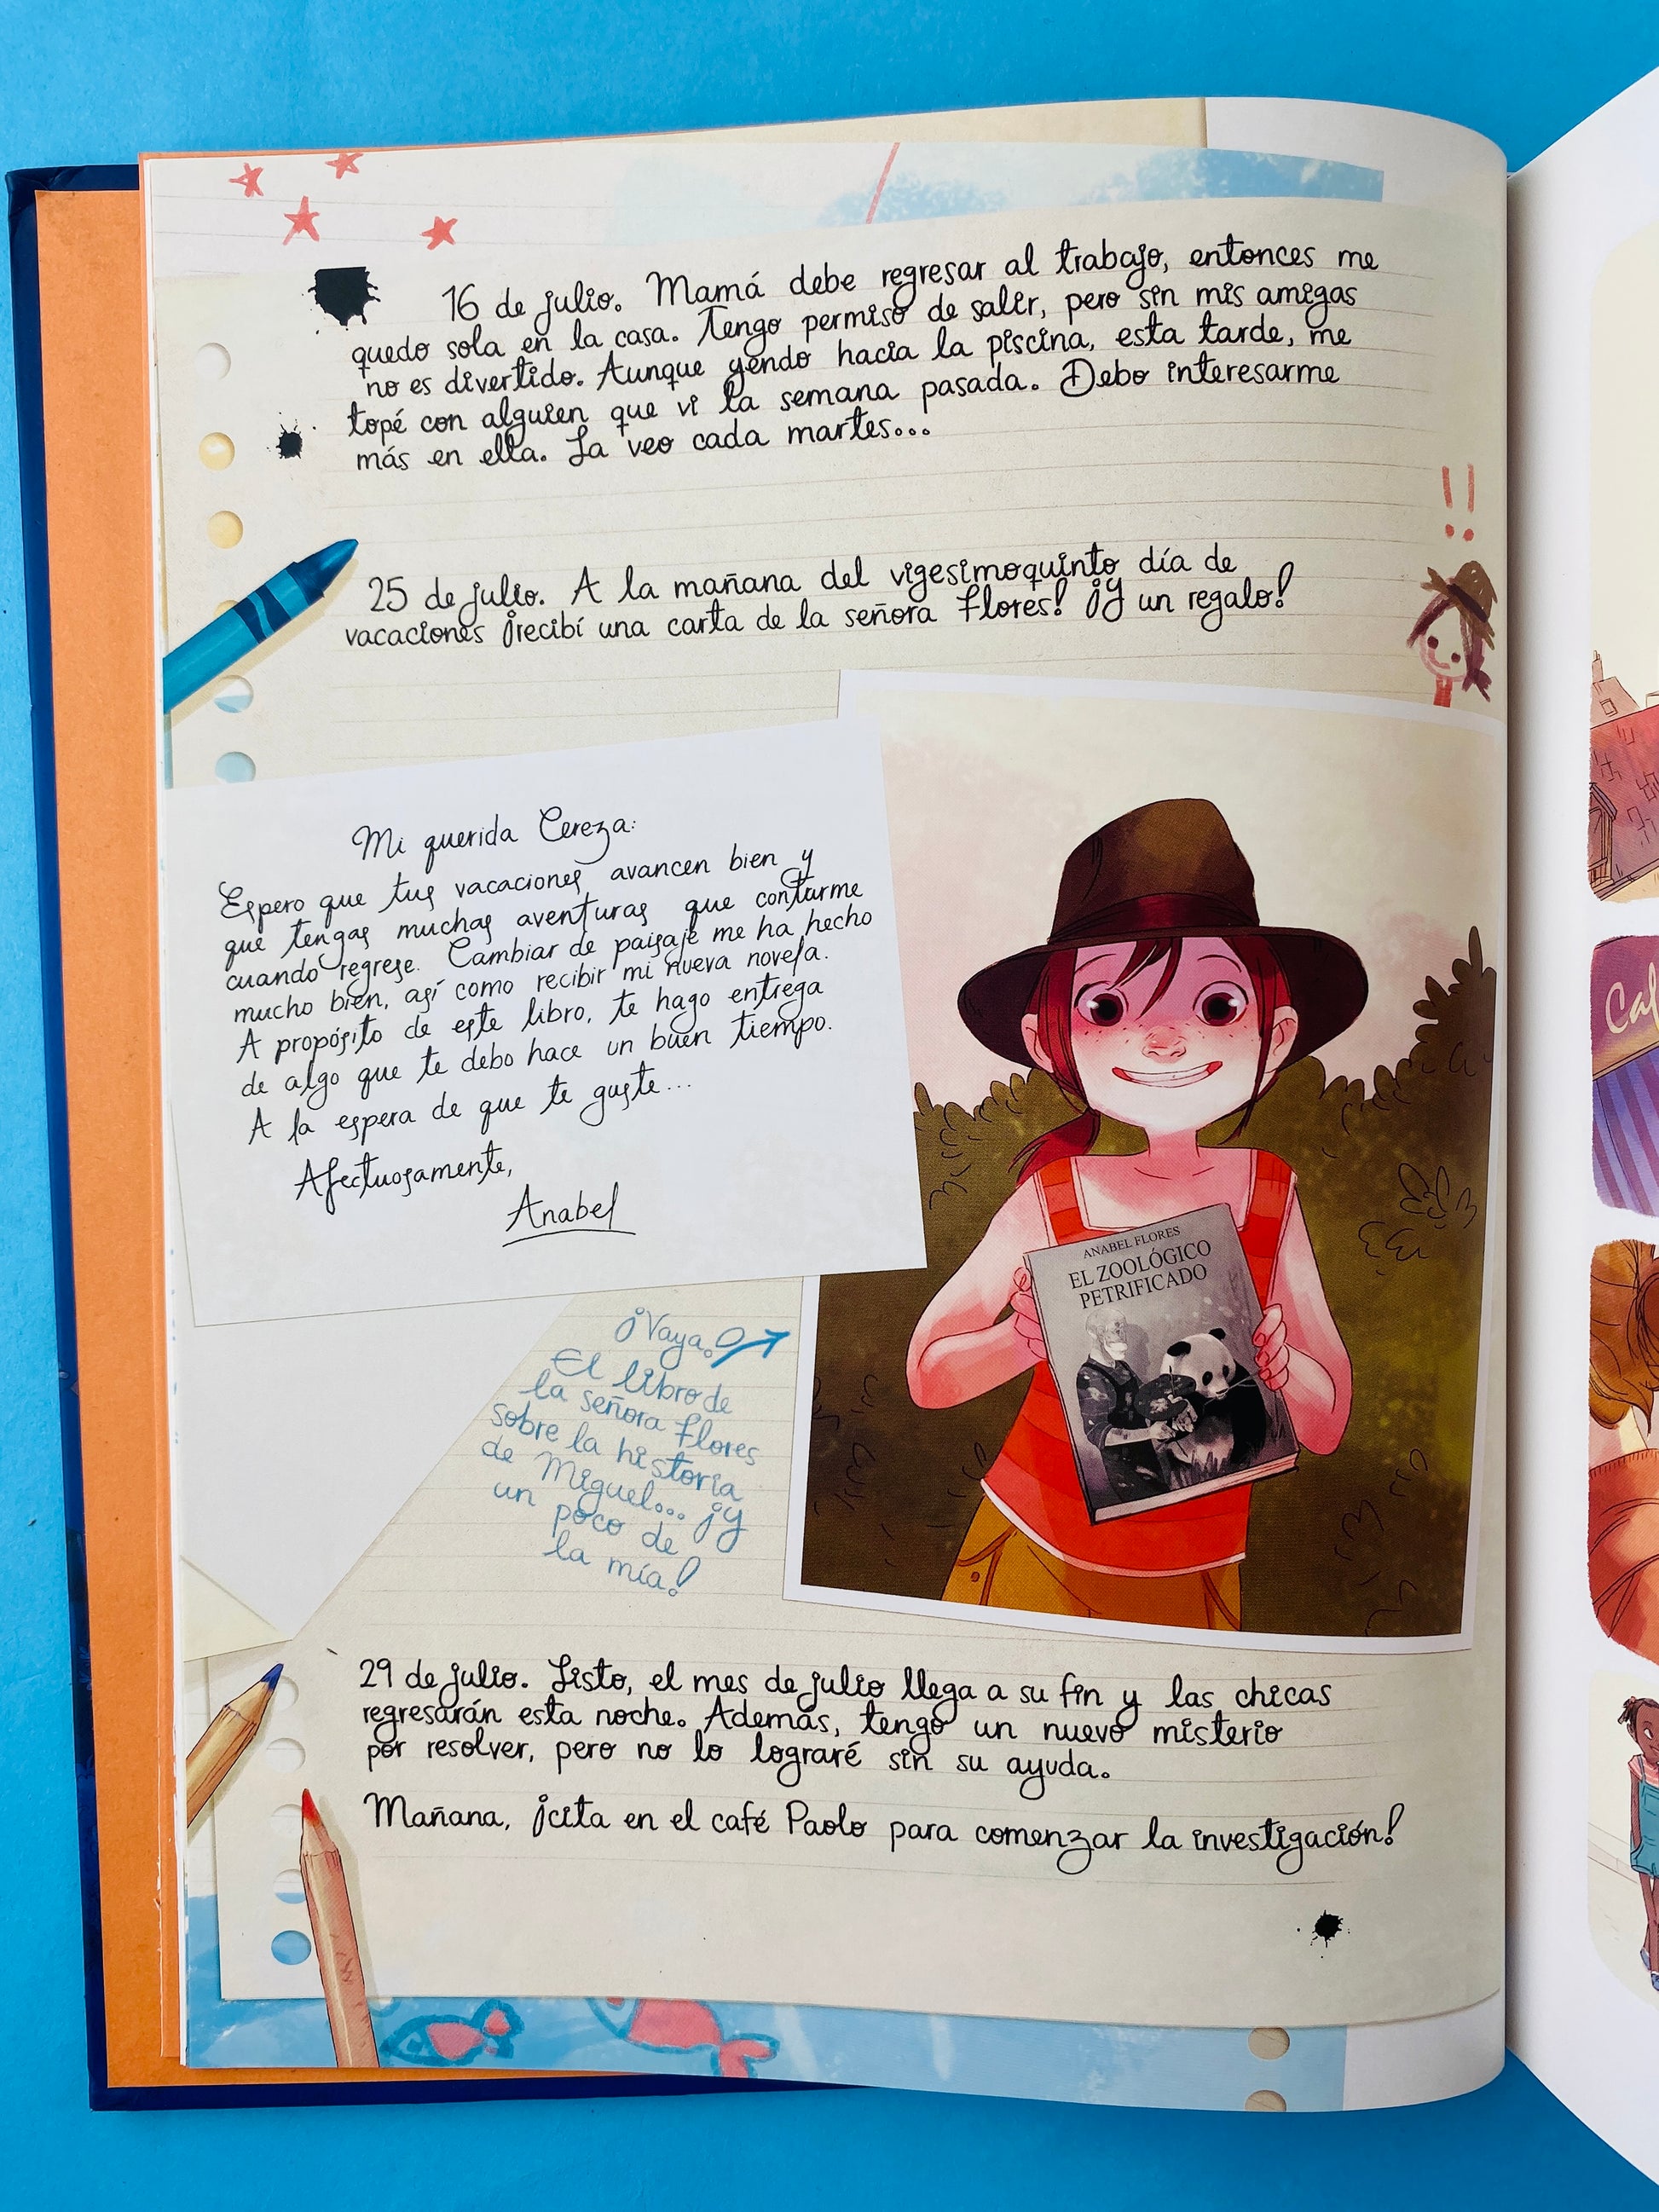 16 de julio. Mamá debe regresar al trabajo, entonces me
quedo sola en la casa. Tengo permiso de salir, pero sin mis amigas
no es divertido. Aunque yendo hacia la piscina, esta tarde, me
topé con alguien que vi la semana pasada. Debo interesarme
más en ella. La veo cada martes...
25 de julio. A la mañana del vigesimoquinto día de
vacaciones ¡recibí una carta de la señora Flores! ¡Y un regalo!
!!
Mi querida Cereza:
Espero que tus vacaciones avancen bien y
que tengas muchas aventuras que contarme
cuando regrese. Cambiar de paisaje me ha hecho
mucho bien, así como recibir mi nueva novela.
A propósito de este libro, te hago entrega
de algo que te debo hace un buen tiempo.
A la espera de que te guste...
Afectuosamente,
Anabel
ANABEL FLORES
EL ZOOLÓGICO
PETRIFICADO
¡Vaya!
El libro de
la señora Flores
sobre la historia
de Miguel... ¡y
un poco de
la mía!
29 de julio. Listo, el mes de julio llega a su fin y las chicas
regresarán esta noche. Además, tengo un nuevo misterio
por resolver, pero no lo lograré sin su ayuda.
Mañana, ¡cita en el café Paolo para comenzar la investigación!